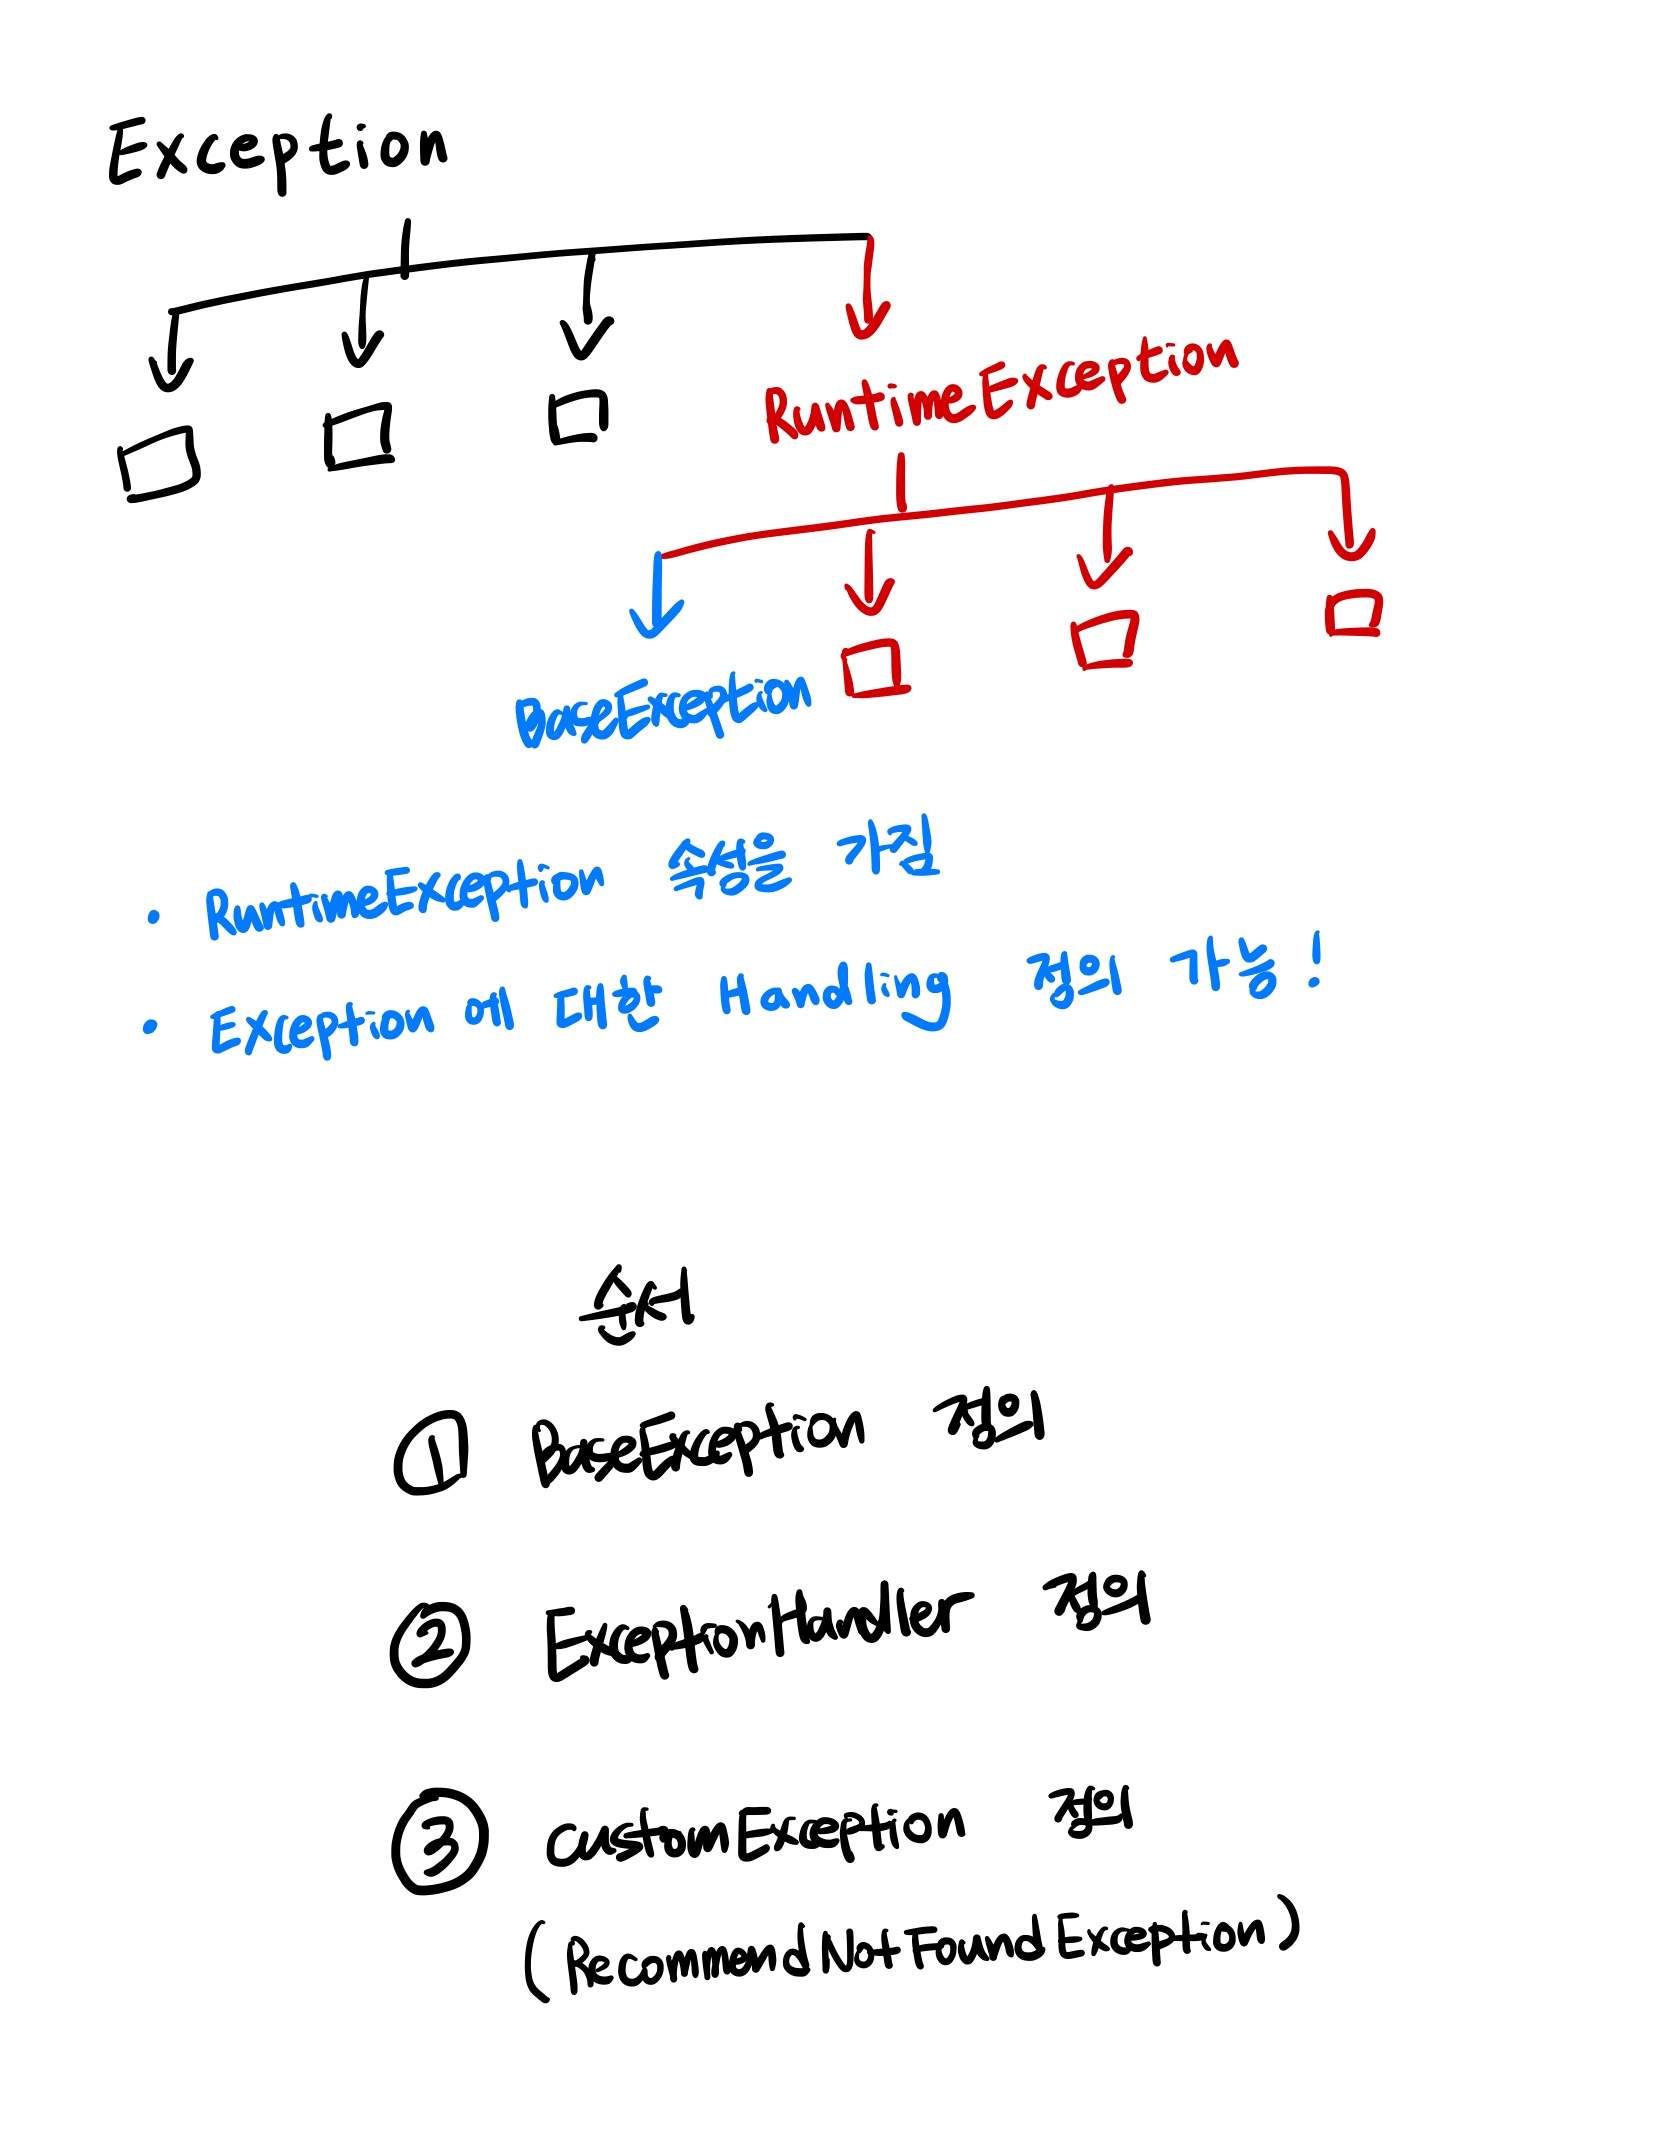 Exception
RuntimeException
BaseException
• RuntimeException 속성을 가짐
• Exception 에 대한 Handling 정의 가능!
순서
① BaseException 정의
② ExceptionHandler 정의
③ CustomException 정의
(RecommendNotFoundException)